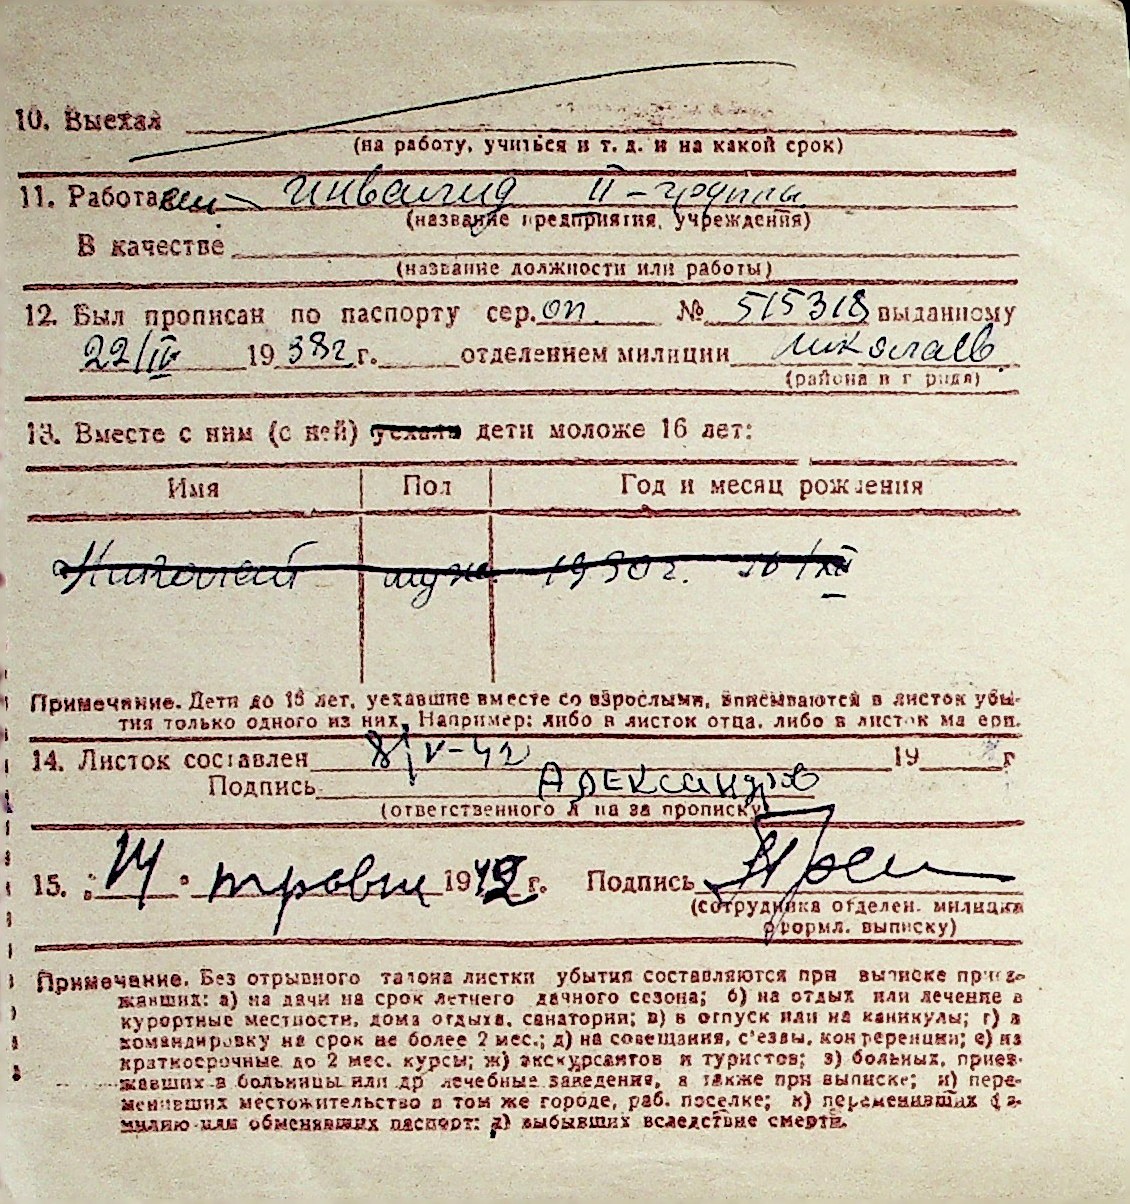 10. Выехал
(на работу, учиться и т. д. и на какой срок)
11. Работа инвалид II-группы
(название предприятия, учреждения)
В качестве
(название должности или работы)
12. Был прописан по паспорту сер. ОП № 515318 выданному
22/IV 1938г г. отделением милиции Николаев
(района и г рода)
13. Вместе с ним (с ней) уехали дети моложе 16 лет:
Имя Пол Год и месяц рождения
Николай муж. 1930г. 16/XII
Примечание. Дети до 16 лет, уехавшие вместе со взрослыми, вписываются в листок убы-
тия только одного из них. Например: либо в листок отца, либо в листок ма ери.
14. Листок составлен 8/V-42 19 г
Подпись Александров
(ответственного л ца за прописку)
15. „14" травня 1942 г. Подпись
(сотрудника отделен. милиции
оформл. выписку)
Примечание. Без отрывного талона листки убытия составляются при выписке приез-
жавших: а) на дачи на срок летнего дачного сезона; б) на отдых или лечение в
курортные местности, дома отдыха, санатории; в) в отпуск или на каникулы; г) в
командировку на срок не более 2 мес.; д) на совещания, с'езды, конференции; е) на
краткосрочные до 2 мес. курсы; ж) экскурсантов и туристов; з) больных, приез-
жавших в больницы или др лечебные заведения, а также при выписке; и) пере-
менивших местожительство в том же городе, раб. поселке; к) переменивших фа-
милию или обменявших паспорт; л) выбывших вследствие смерти.